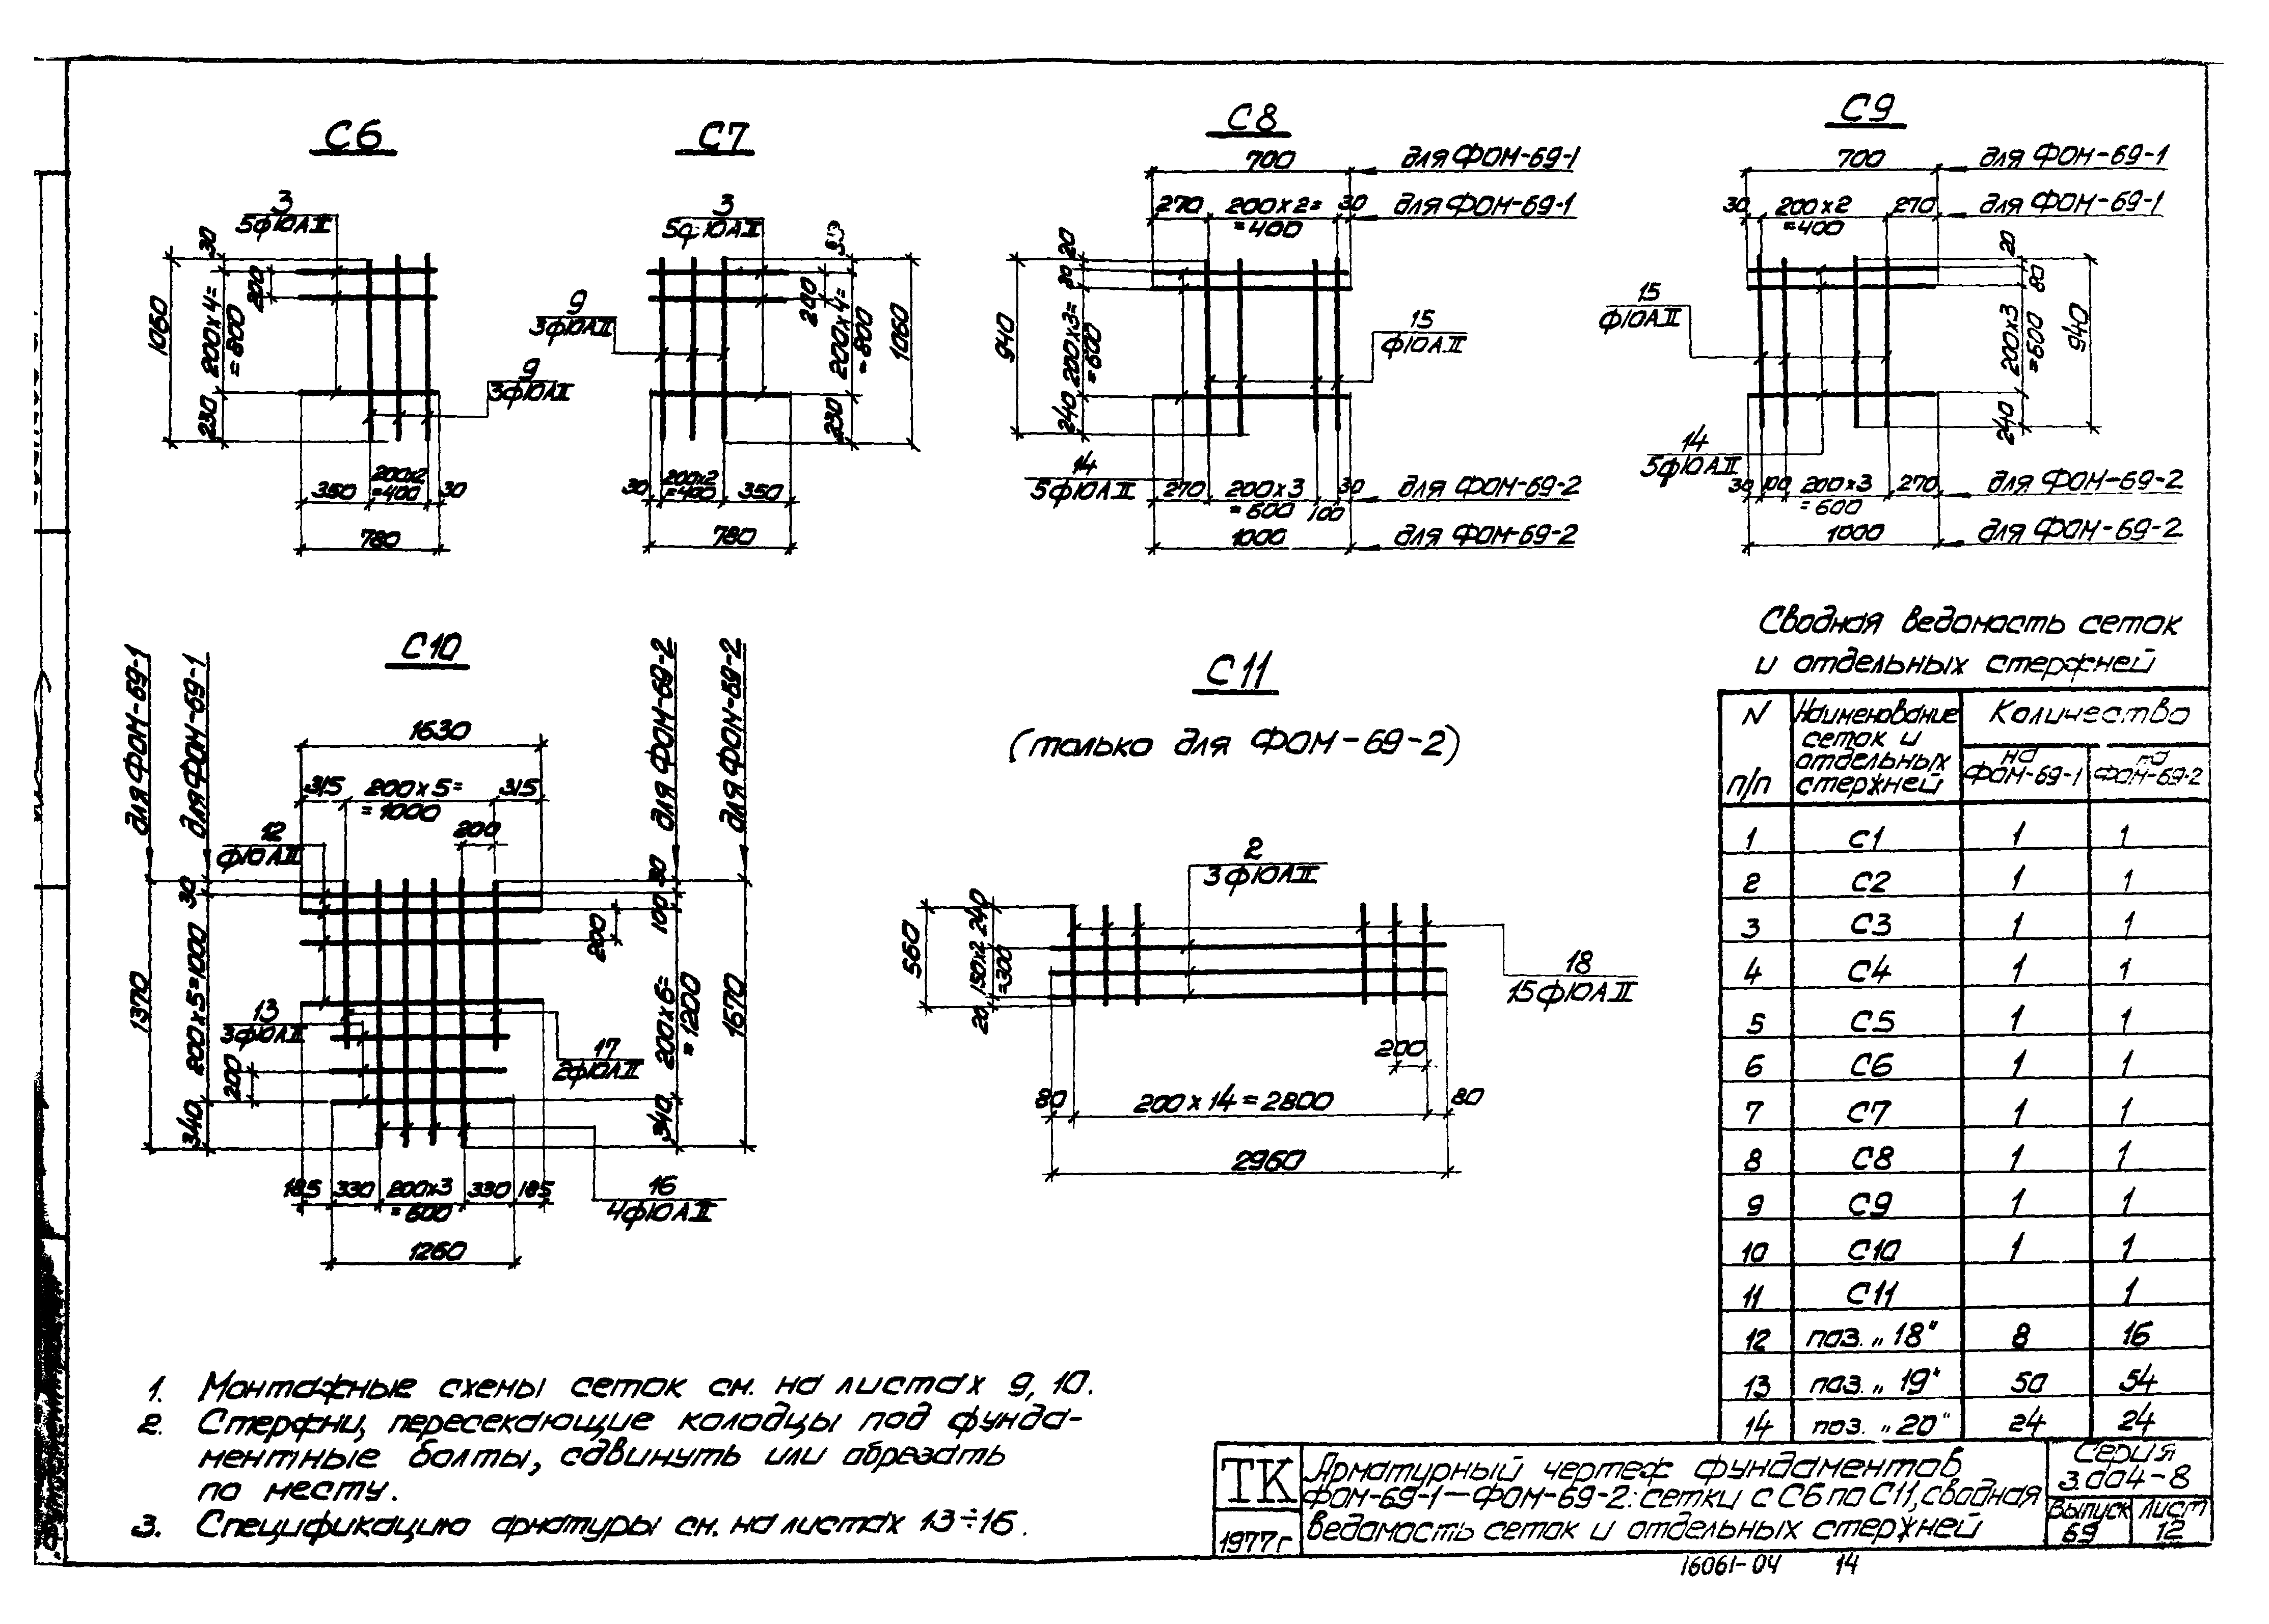 С6
3
5ф10АII
30
200
1060
200х4=
=800
230
9
3ф10АII
350
200х2
=400
30
780
С7
3
5ф10АII
30
200
200х4=
=800
1060
230
9
3ф10АII
30
200х2
=400
350
780
С8
700
для ФОМ-69-1
270
200х2=
=400
30
для ФОМ-69-1
20
80
940
200х3=
=600
240
15
ф10АII
14
5ф10АII
270
200х3
=600
100
30
для ФОМ-69-2
1000
для ФОМ-69-2
С9
700
для ФОМ-69-1
30
200х2
=400
270
для ФОМ-69-1
20
80
200х3
=600
940
240
15
ф10АII
14
5ф10АII
30
100
200х3
=600
270
для ФОМ-69-2
1000
для ФОМ-69-2
С10
для ФОМ-69-1
для ФОМ-69-1
для ФОМ-69-2
для ФОМ-69-2
1630
315
200х5=
=1000
315
200
12
ф10АII
30
200х5=1000
1370
340
30
100
200
200х6=
=1200
1670
340
13
3ф10АII
200
17
2ф10АII
185
330
200х3
=600
330
185
16
4ф10АII
1260
С11
(только для ФОМ-69-2)
2
3ф10АII
560
240
150х2
=300
20
18
15ф10АII
200
80
200х14=2800
80
2960
Сводная ведомасть сеток
и отдельных стержней
N
п/п
Наименование
сеток и
отдельных
стержней
Количество
на
ФОМ-69-1
на
ФОМ-69-2
1 С1 1 1
2 С2 1 1
3 С3 1 1
4 С4 1 1
5 С5 1 1
6 С6 1 1
7 С7 1 1
8 С8 1 1
9 С9 1 1
10 С10 1 1
11 С11 1
12 поз. „18" 8 16
13 поз. „19" 50 54
14 поз. „20" 24 24
1. Монтажные схемы сеток см. на листах 9, 10.
2. Стержни, пересекающие колодцы под фунда-
ментные болты, сдвинуть или обрезать
по месту.
3. Спецификацию арматуры см. на листах 13÷16.
ТК
1977г
Арматурный чертеж фундаментов
ФОМ-69-1—ФОМ-69-2: сетки с С6 по С11, сводная
ведомасть сеток и отдельных стержней
Серия
3.004-8
Выпуск
69
лист
12
16061-04 14